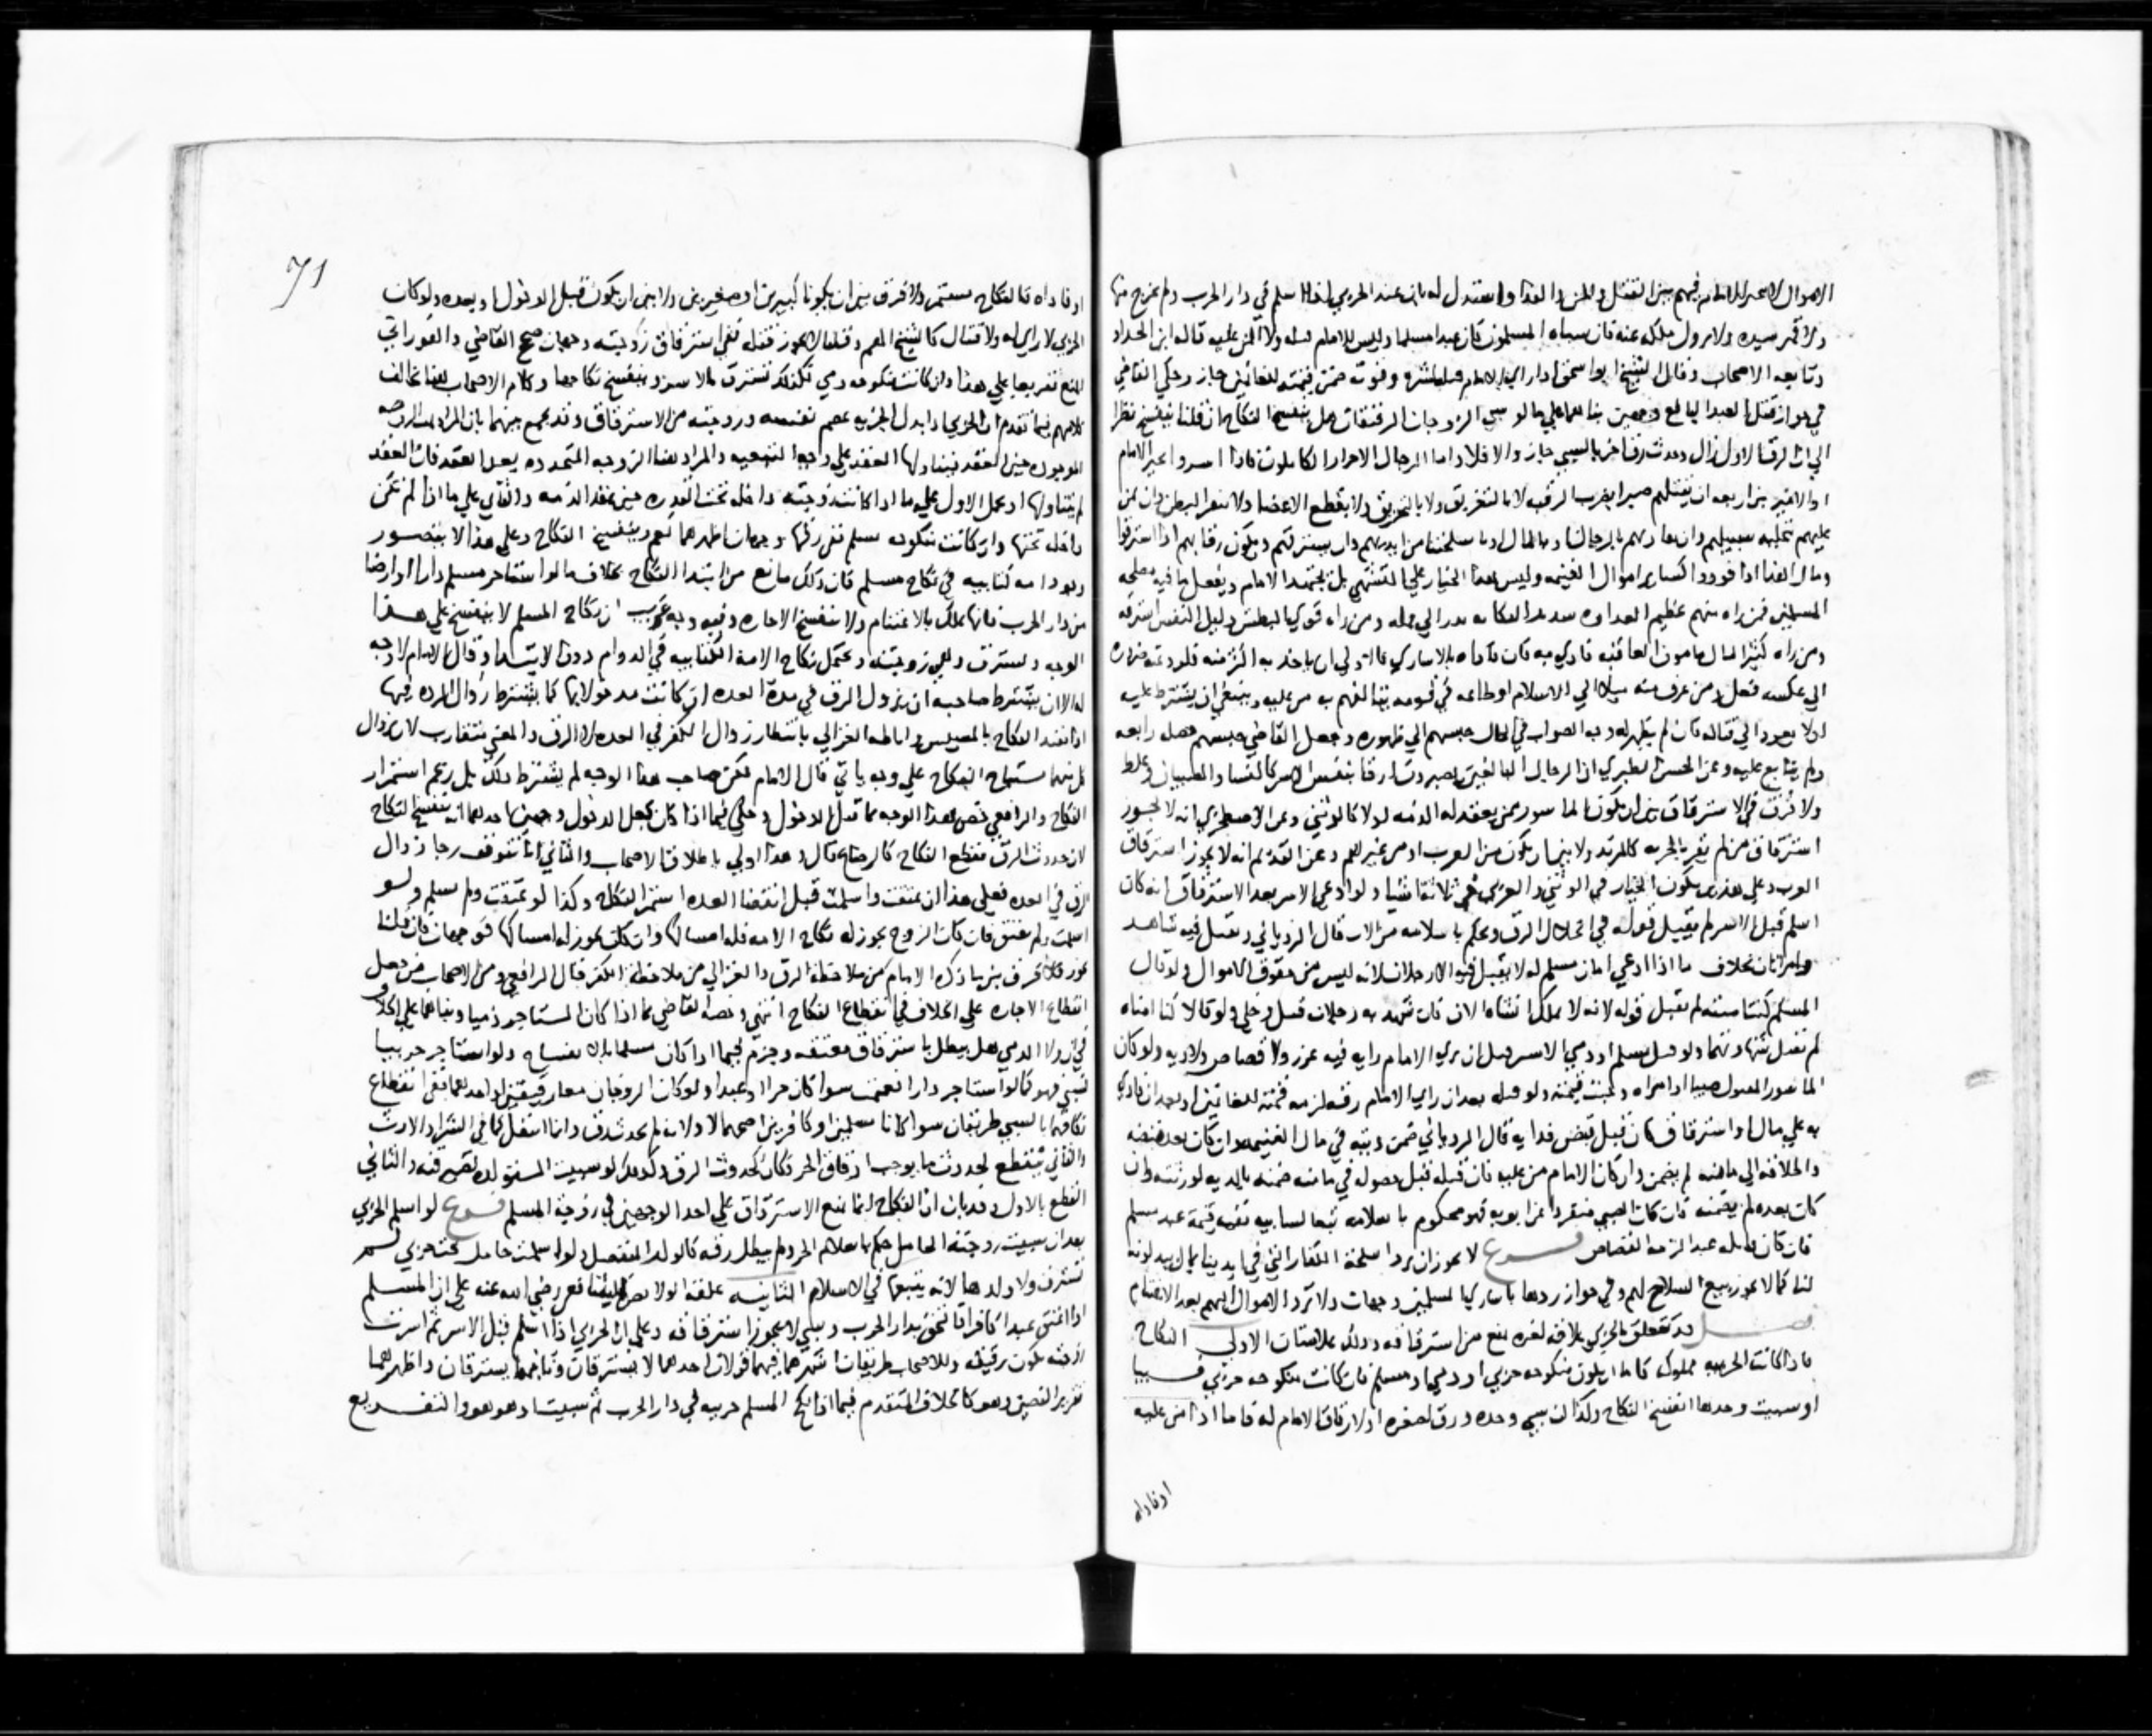 الاموال لا تخير للامام فيهم بين القتل والمن والفدا واستدل له بان عبد الحربي اذا اسلم في دار الحرب ولم يخرج منها
ولا قهر سيده ولا يزول ملكه عنه فان سباه المسلمون كان عبدا مسلما وليس للامام قتله ولا المن عليه قاله ابن الحداد
وتابعه الاصحاب وقال الشيخ ابو اسحق اذا راي الامام قتله لشره وقوته ضمن قيمته للغانمين جاز وحكي القاضي
في جواز قتل العبد البالغ وجهين بناهما علي ما لو سبي الزوجان الرقيقان هل ينفسخ النكاح ان قلنا ينفسخ نظرا
الي ان الرق الاول زال وحدث رق اخر بالسبي جاز والا فلا واما الرجال الاحرار الكاملون فاذا اسروا تخير الامام
او الامير بين اربعه ان يقتلهم صبرا بضرب الرقبه لا بالتغريق ولا بالتحريق ولا بقطع الاعضا ولا ببقر البطن وان يمن
عليهم بتخليه سبيلهم وان يفاديهم بالرجال او بالمال او باسلحتنا من ايديهم وان يسترقهم وتكون رقابهم اذا استرقوا
ومال الفدا اذا فودوا كساير اموال الغنيمه وليس هذا الخيار علي التشهي بل يجتهد الامام ويفعل ما فيه مصلحه
المسلمين فمن راه منهم عظيم العداوه قتله ومن راه قوي البطش ذليل النفس استرقه
ومن راه كثير المال مامون العاقبه فادي به
الي عكسه فعل ومن عرف منه ميلا الي الاسلام او طاعه في قومه يتالفهم به من عليه وينبغي ان يشترط عليه
ان لا يعود الي قتاله فان لم يظهر له وجه الصواب في الحال حبسهم الي ظهوره وجعل القاضي حبسهم خصله رابعه
ولم يتابع عليه وعن الحسن الطبري ان الرجال البالغين يصيرون ارقا بنفس الاسر كالنسا والصبيان وغلط
ولا فرق في الاسترقاق بين ان يكون الماسور ممن يعقد له الذمه اولا كالوثني وعن الاصطخري انه لا يجوز
استرقاق من لم يقر بالجزيه كالمرتد ولا بين ان يكون من العرب او من غيرهم وعن القديم انه لا يجوز استرقاق
العرب وعلي هذين يكون الخيار في الوثني والعربي في ثلاثه اشيا ولو ادعي الاسير بعد الاسترقاق انه كان
اسلم قبل الاسر لم يقبل قوله في ابطال الرق ويحكم باسلامه من الان قال الروياني ويقبل فيه شاهد
وامراتان بخلاف ما اذا ادعي امان مسلم له لا يقبل فيه الا رجلان لانه ليس من حقوق الاموال ولو قال
المسلم كنت امنته لم يقبل قوله لانه لا يملك انشاه الان فان شهد به رجلان قبل وخلي ولو قالا كنا امناه
لم تقبل شهادتهما ولو قتل مسلم او ذمي الاسير قبل ان يري الامام رايه فيه عزر ولا قصاص ولا ديه ولو كان
الماسور المقتول صبيا او امراه وجبت قيمته ولو قتله بعد ان راي الامام رقه لزمه قيمته للغانمين او بعد ان فادي
به علي مال او استرقاق كان قبل قبض فدايه قال الروياني ضمن ديته في مال الغنيمه وان كان بعد قبضه
واطلاقه الي مامنه لم يضمن وان كان الامام من عليه فان قتله قبل حصوله في مامنه ضمنه بالديه لورثته وان
كان بعده لم يضمنه فان كان الصبي منفردا عن ابويه فهو محكوم باسلامه تبعا لسابيه ففيه قيمة عبد مسلم
فان كان قاتله عبد الزمه القصاص فرع لا يجوز ان يرد اسلحة الكفار التي في ايدينا بمال يبذلونه
لنا كما لا يجوز بيع السلاح لهم وفي جواز ردها باساري المسلمين وجهان ولا ترد الاموال اليهم بعد الاغتنام
فصل قد تتعلق بالحربي علاقه لغيره تمنع من استرقاقه وذلك علاقتان الاولي النكاح
فاذا كانت الحربيه مملوكه فاما ان يكون منكوحه حربي او ذمي او مسلم فان كانت منكوحه حربي فسبيا
او سبيت وحدها انفسخ النكاح وكذا ان سبي وحده ورق لصغره او لارقاق الامام له فاما اذا من عليه
او فاداه
71
او فاداه فالنكاح مستمر ولا فرق بين ان يكونا كبيرين او صغيرين ولا بين ان يكون قبل الدخول او بعده ولو كان
الحربي لا راي له ولا قتال كالشيخ الهم وقلنا لا يجوز قتله ففي استرقاق زوجته وجهان صحح القاضي والفوراني
المنع تفريعا علي هذا وان كانت منكوحه ذمي فكذلك تسترق بالاسر وينفسخ نكاحها وكلام الاصحاب هنا يخالف
كلامهم فيما تقدم ان الحربي اذا بذل الجزيه عصم نفسه وزوجته من الاسترقاق وقد يجمع بينهما بان المراد الزوجه
الموجوده حين العقد فيتناولها العقد علي وجه التبعيه والمراد هنا الزوجه المتجدده بعد العقد فان العقد
لم يتناولها او يحمل الاول علي ما اذا كانت زوجته داخله تحت القدره حين عقد الذمه والثاني علي ما اذا لم تكن
داخله تحتها وان كانت منكوحه مسلم ففي رقها وجهان اظهرهما نعم وينفسخ النكاح وعلي هذا لا يتصور
وجود امه كتابيه في نكاح مسلم فان ذلك مانع من ابتدا النكاح بخلاف ما لو استاجر مسلم دارا او ارضا
من دار الحرب فانها تملك بالاغتنام ولا تنفسخ الاجاره وفيه وجه غريب ان نكاح المسلم لا ينفسخ علي هذا
الوجه وتسترق وهي زوجته ويحتمل نكاح الامة الكتابيه في الدوام دون الابتدا وقال الامام لا وجه
له الا ان يشترط صاحبه ان يزول الرق في مدة العده ان كانت مدخولا بها كما يشترط زوال الرده فيها
الغزالي بانتظار زوال الكفر في العده لا الرق والمعني متقارب لان زوال
كل منهما يستباح النكاح علي وجه ياتي قال الامام لكن صاحب هذا الوجه لم يشترط ذلك بل زعم استمرار
النكاح والرافعي خص هذا الوجه بما قبل الدخول وحكي فيما اذا كان بعد الدخول وجهين احدهما انه ينفسخ النكاح
لان حدوث الرق يقطع النكاح كالرضاع قال وهذا اولي باطلاق الاصحاب والثاني انا نتوقف رجا زوال
الرق في العده فعلي هذا ان عتقت واسلمت قبل انقضا العده استمر النكاح وكذا لو عتقت ولم تسلم ولو
اسلمت ولم تعتق فان كان الزوج يجوز له نكاح الامه فله امساكها وان كان لا يجوز له امساكها فوجهان
ما ذكره الامام من ملاحظة الرق والغزالي من ملاحظة الكفر قال الرافعي ومن الاصحاب من جعل
انقطاع الاجاره علي الخلاف في انقطاع النكاح انتهي وخصه القاضي بما اذا كان المستاجر ذميا وبناهما علي الخلاف
في ان ولا الذمي هل يبطل باسترقاق معتقه وجزم فيما اذا كان مسلما بان لا تنفسخ ولو استاجر حربيا
فسبي فهو كما لو استاجر دارا فغنمت سوا كان حرا او عبدا ولو كان الزوجان معا رقيقين او احدهما ففي انقطاع
نكاحهما بالسبي طريقان سوا كانا مسلمين او كافرين اصحهما لا ولانه لم يحدث رق وانما انتقل كما في الشرا والارث
والثاني ينقطع لحدوث ما يوجب ارقاق الحر فكان كحدوث الرق وكذلك لو سبيت المستولده تصير قنه والثاني
القطع بالاول وقد بان ان النكاح انما يمنع الاسترقاق علي احد الوجهين في زوجة المسلم فرع لو اسلم الحربي
بعد ان سبيت زوجته الحامل حكم باسلام الحمل ولم يبطل رقه كالولد المنفصل ولو اسلمت حامل تحت حربي لم
تسترق ولا ولدها لانه يتبعها في الاسلام الثانيه علقة الولا نص الشافعي رضي الله عنه علي ان المسلم
اذا اعتق عبدا كافرا فالتحق بدار الحرب وسبي لا يجوز استرقاقه وعلي ان الحربي اذا اسلم قبل الاسر ثم اسرت
زوجته تكون رقيقه وللاصحاب طريقان اشهرهما فيهما قولان احدهما لا يسترقان وثانيهما يسترقان واظهرهما
تقرير النصين وهو كالخلاف المتقدم فيما اذا نكح المسلم حربيه في دار الحرب ثم سبيت او هو هو والتفريع